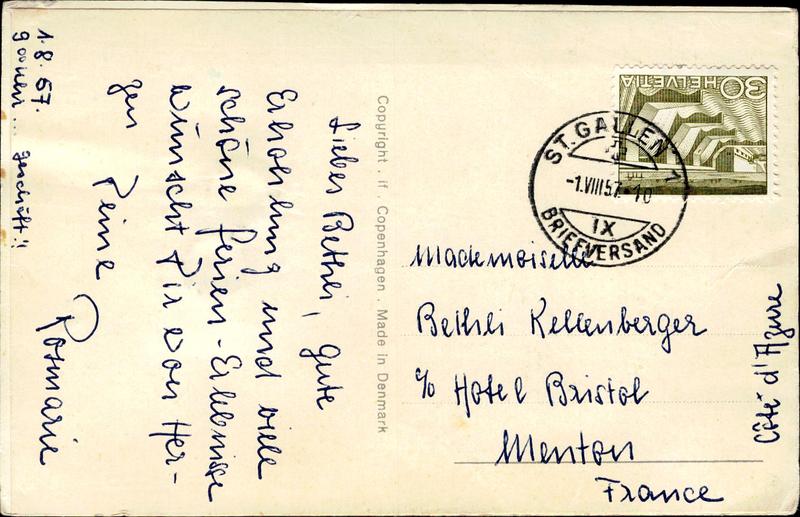 1.8.57.
9 00 Uhr ... geschäft!!
Liebes Bethli, gute
Erholung und viele
schöne Ferien-Erlebnisse
wünscht Dir von Her-
zen
Deine
Rosmarie
Copyright . if . Copenhagen . Made in Denmark
HELVETIA 30
ST. GALLEN 1
-1.VIII.57.-10
IX
BRIEFVERSAND
Mademoiselle
Bethli Kellenberger
c/o Hotel Bristol
Menton
France
Côté d'Azure